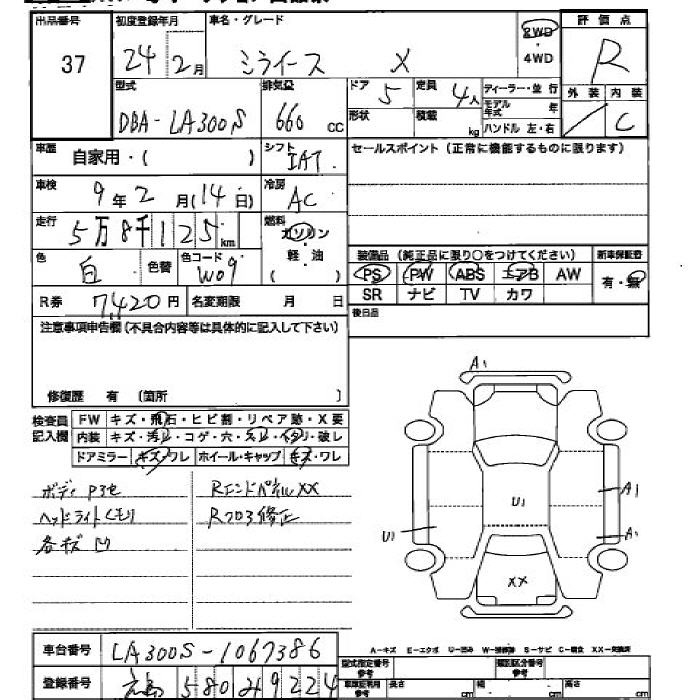 出品番号 37
初度登録年月 24年2月
車名・グレード ミライース X
2WD
4WD
評価点 R
外装 内装 C
型式 DBA-LA300S
排気量 660 cc
ドア 5
定員 4人
形状
積載 kg
ディーラー・並行
モデル年式 年
ハンドル 左・右
車歴 自家用・( )
シフト IAT
セールスポイント(正常に機能するものに限ります)
車検 9年2月(14日)
冷房 AC
走行 5万8千125km
燃料 ガソリン・軽油 ( )
色 白 色替 色コード W09
装備品(純正品に限り○をつけてください) 新車保証書
PS PW ABS エアB AW 有・無
SR ナビ TV カワ
R券 7,420円 名変期限 月 日
後日品
注意事項申告欄(不具合内容等は具体的に記入して下さい)
修復歴 有 〔箇所 〕
検査員記入欄
FW キズ・飛石・ヒビ割・リペア跡・X要
内装 キズ・汚れ・コゲ・穴・
ドアミラー キズ・ワレ ホイール・キャップ キズ・ワレ
ボディ P3セ RエンドパネルXX
ヘッドライトくもり Rフロア修正
各キズ凹
A1
A1
U1
U1
A1
XX
車台番号 LA300S-1067386
登録番号 580 29224
A-キズ E-エクボ U-凹み S-サビ XX-交換済
型式指定番号 参考
類別区分番号 参考
参考 長さ cm 幅 cm 高さ cm